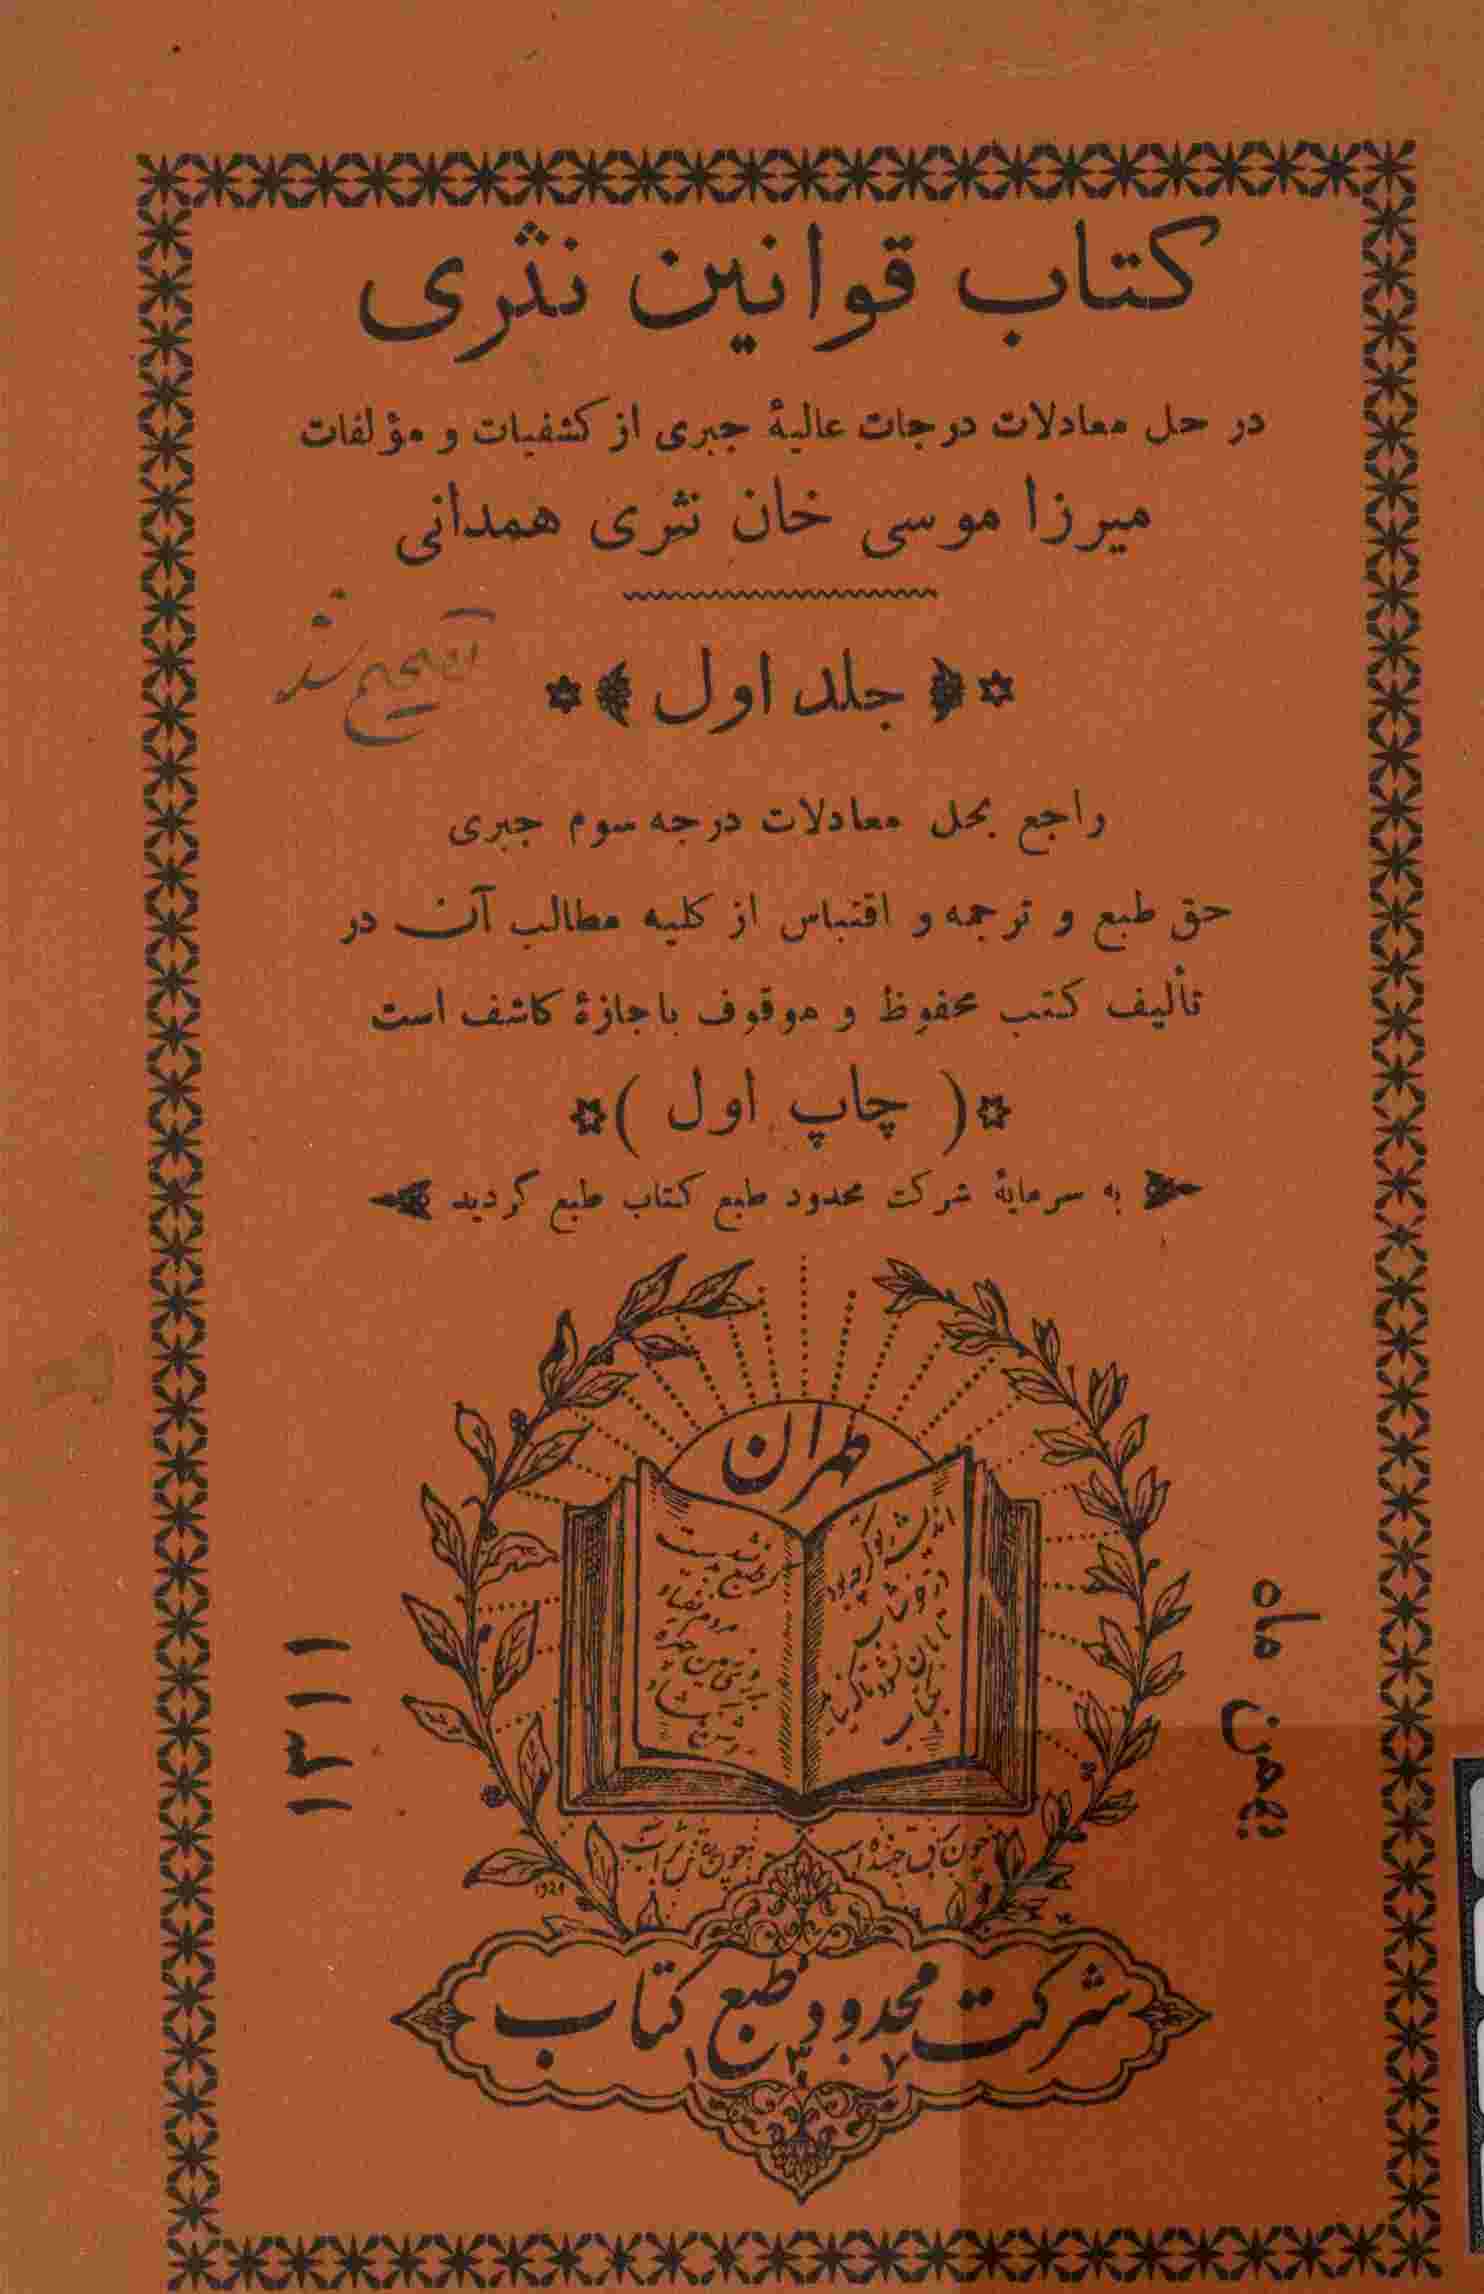 کتاب قوانین نثری
در حل معادلات درجات عالیهٔ جبری از کشفیات و مؤلفات
میرزا موسی خان نثری همدانی
تصحیح شد
جلد اول
راجع بحل معادلات درجه سوم جبری
حق طبع و ترجمه و اقتباس از کلیه مطالب آن در
تألیف کتب محفوظ و موقوف باجازهٔ کاشف است
( چاپ اول )
به سرمایهٔ شرکت محدود طبع کتاب طبع گردید
طهران
بهمن ماه
۱۳۱۱
شرکت محدود طبع کتاب
۱۳۰۷